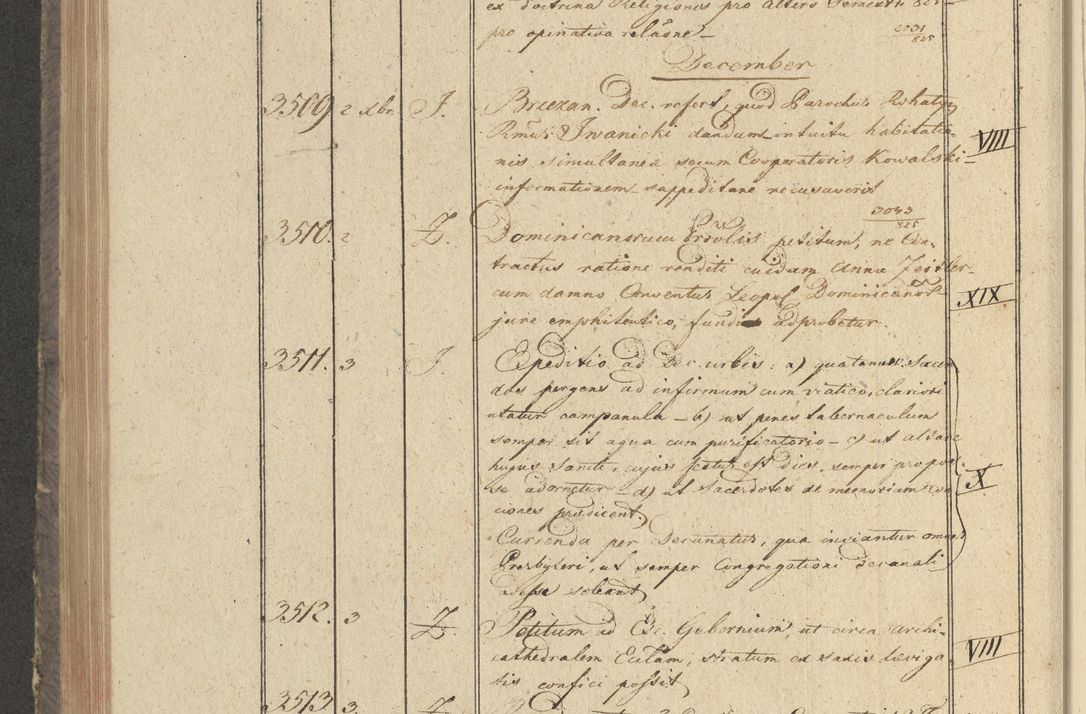 ex doctrina Religionis pro altero Semestri
pro opinativa relaõne
3031
825
December
3509 2 Xbr. J. Brzezan. Dec. refert, quod Parochus Rohatyn.
Rmus. Iwanicki dandum intuitu habitatio-
nis simultaneæ secum Cooperatoris Kowalski
informationem suppeditare recusaverit
VIII
3043
825
3510. 2 Z. Dominicanorum petitum, ne Con-
tractus ratione venditi cuidam Annæ Zeitler
cum damno Conventus Leopol. Dominicanor.
jure emphiteutico, fundi adprobetur.
XIX
3511. 3 J. Expeditio ad Dec. urbis: a) quatenus Sacer-
dos pergens ad infirmum cum viatico, clariori
utatur campanula – b) ut penes tabernaculum
semper sit aqua cum purificatorio – c) ut altare
hujus Sancti, cujus festus est dies, semper pro pos-
se adornetur – d) ut Sacerdotes de memoriam con-
ciones prædicent.
X
Currenda per Decanatus, qua inviantur omnes
Presbyteri, ut semper Congregationi decanali
adesse soleant
3512. 3 Z. Petitum ad Exc. Gubernium, ut circa Archi-
cathedralem Eccłam, stratum ex saxis læviga-
tis confici possit
VIII
3513 3. Z